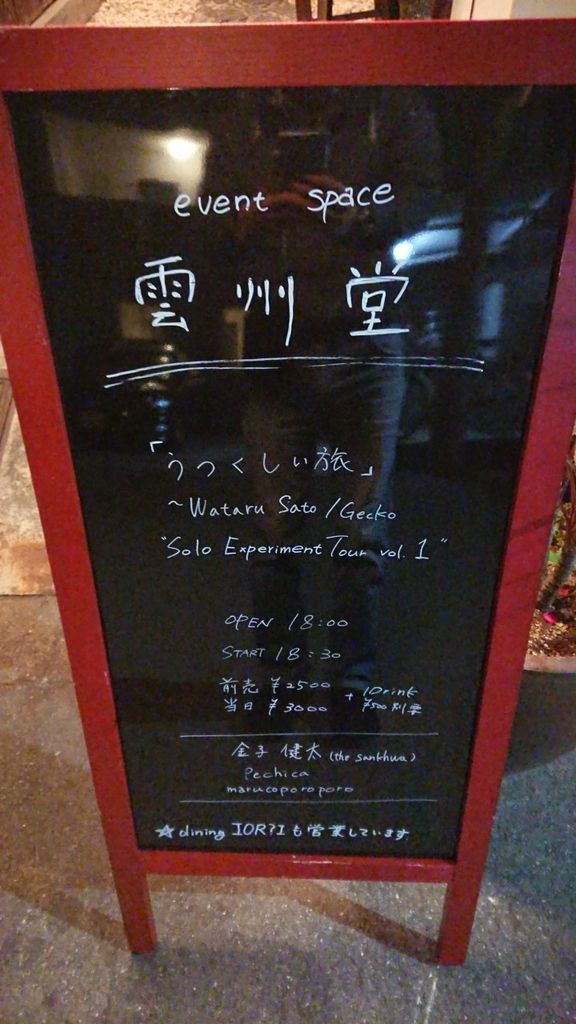 event space
雲州堂
「うつくしい旅」
~Wataru Sato /Gecko
"Solo Experiment Tour vol. 1"
OPEN 18:00
START 18:30
前売 ¥2500 + 1Drink
当日 ¥3000 ¥500別要
金子 健太 (the sankhwa)
Pechica
marucoporoporo
☆dining IORI も営業しています